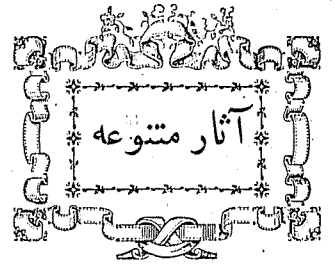 آثار متنوعه